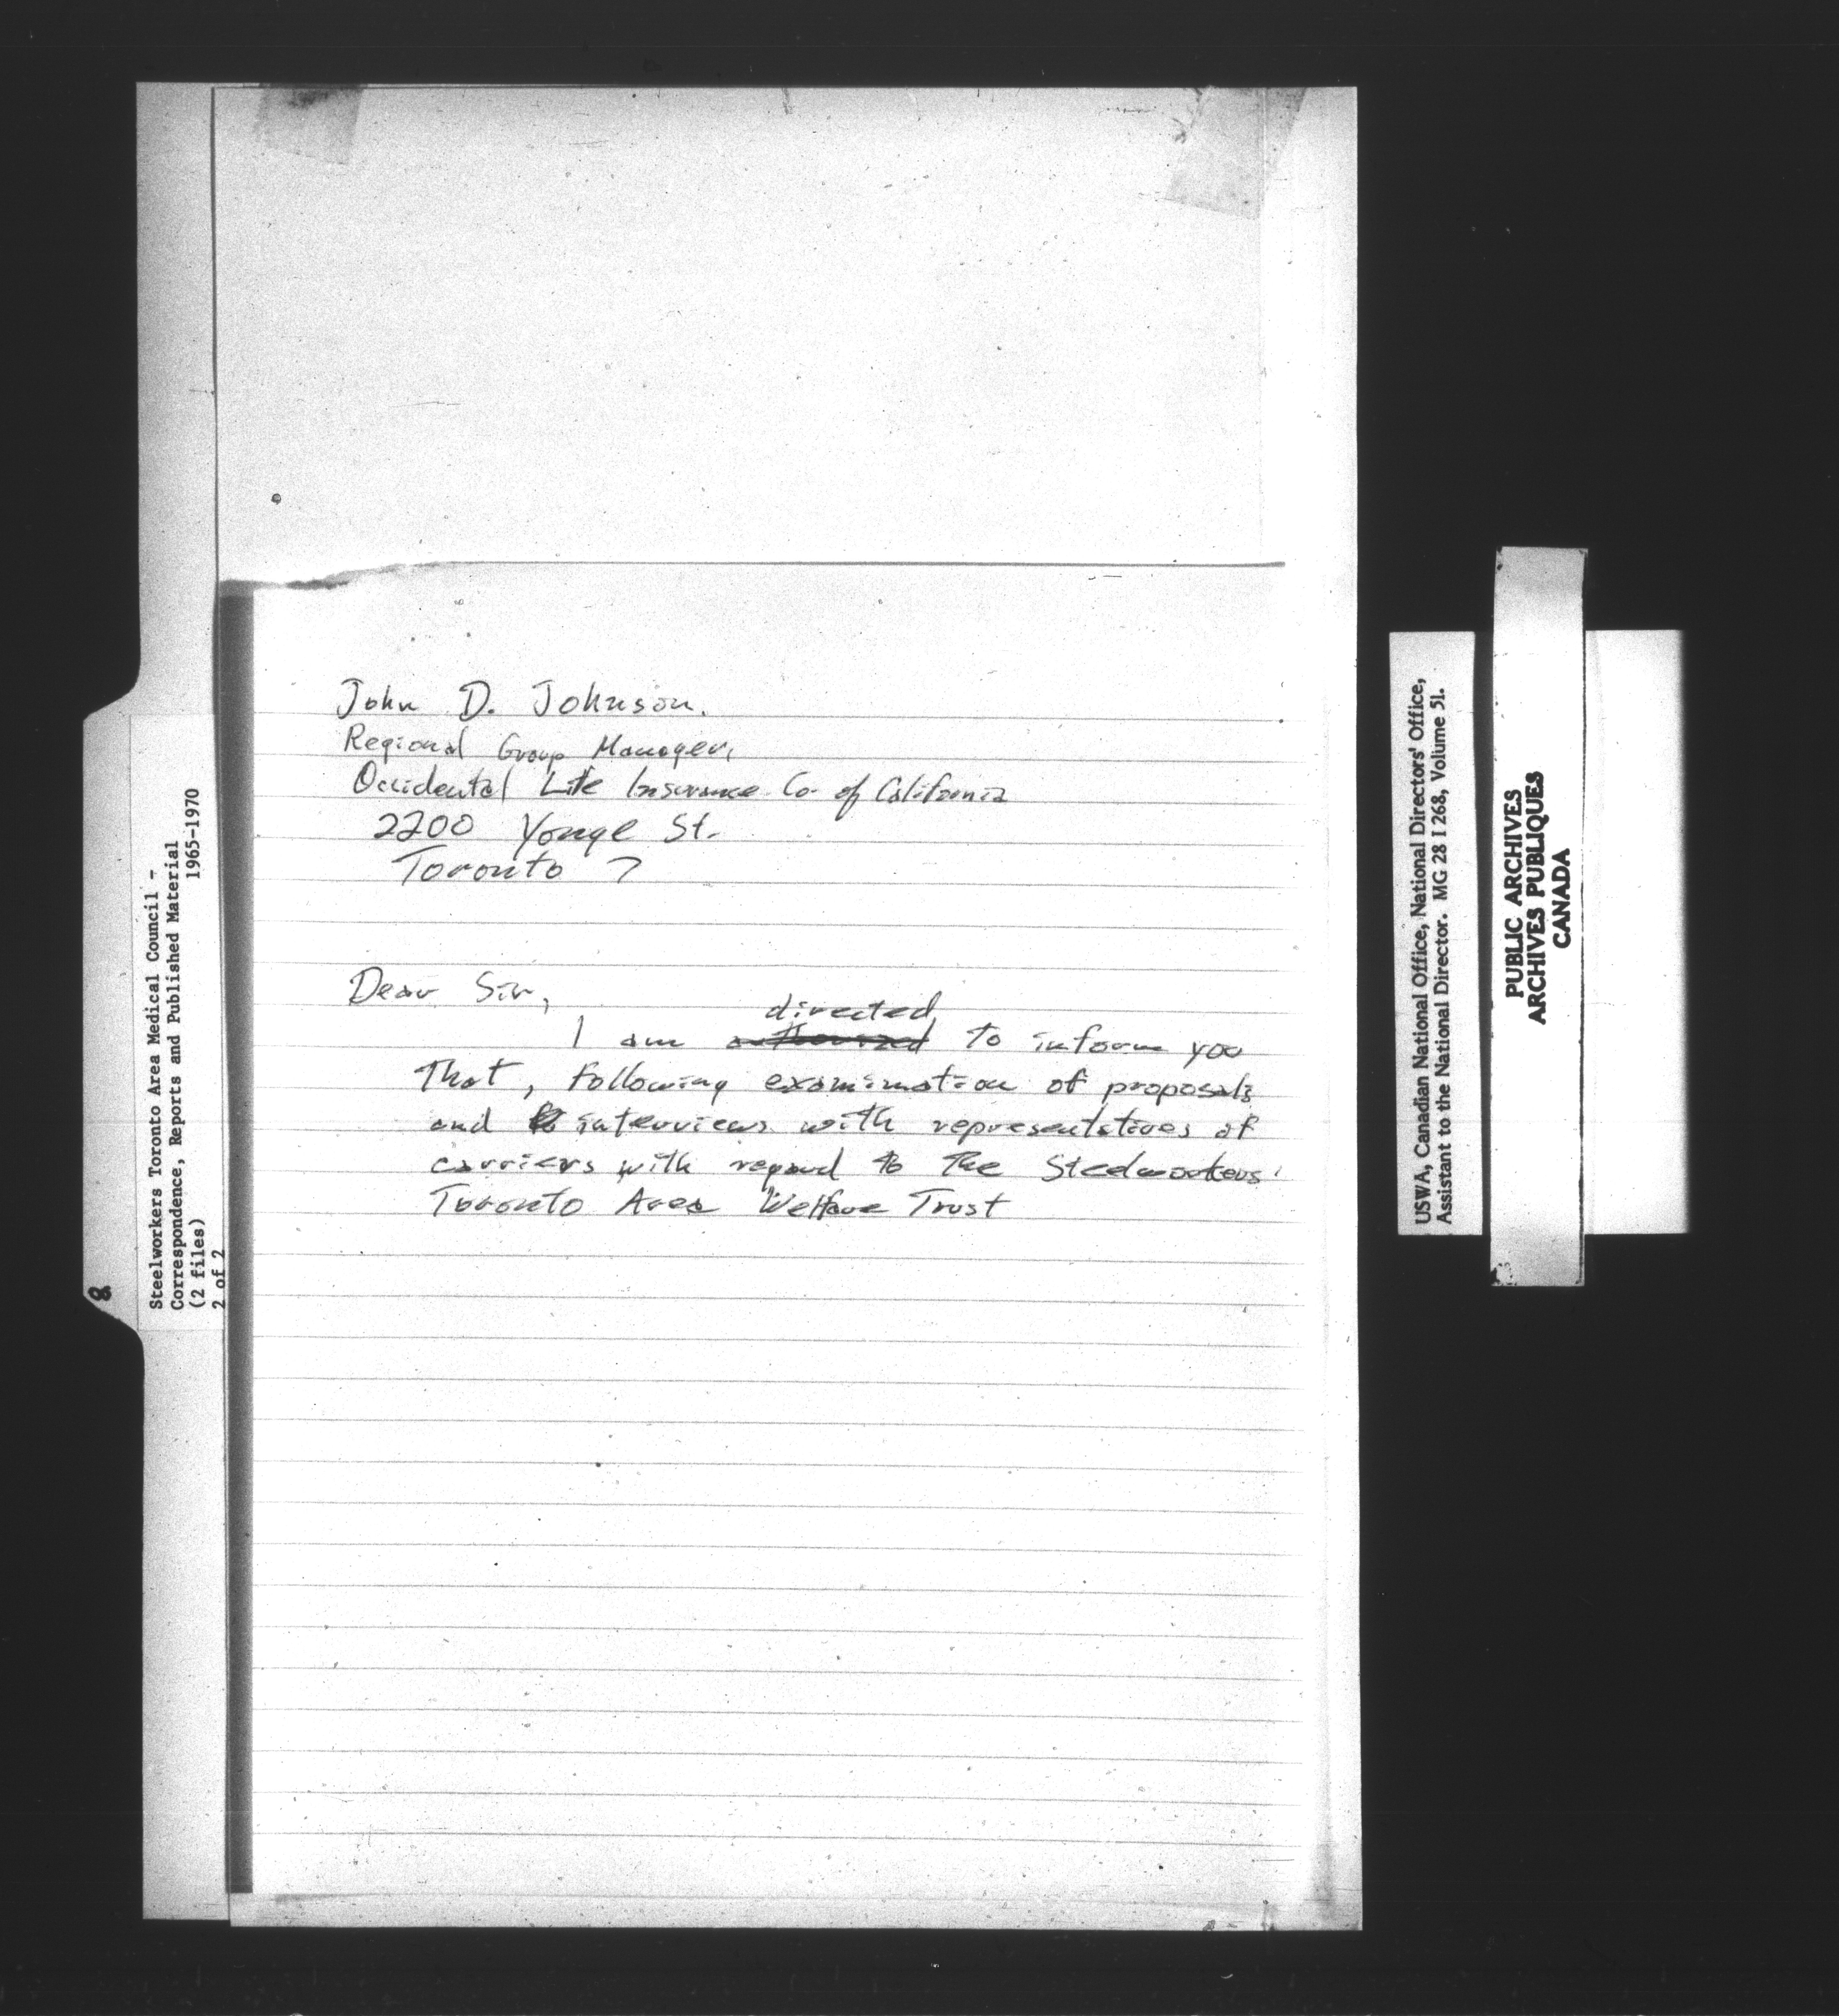 John D. Johnson.
Regional Group Manager,
Occidental Life Insurance Co. of California
2200 Yonge St.
Toronto 7
Dear Sir,
directed
I am authorized to inform you
That, following examination of proposals
and interviews with representatives of
carriers with regard to the Steelworkers'
Toronto Area Welfare Trust
8
Steelworkers Toronto Area Medical Council -
Correspondence, Reports and Published Material
1965-1970
(2 files)
2 of 2
USWA, Canadian National Office, National Directors' Office,
Assistant to the National Director. MG 28 I 268, Volume 51.
PUBLIC ARCHIVES
ARCHIVES PUBLIQUES
CANADA